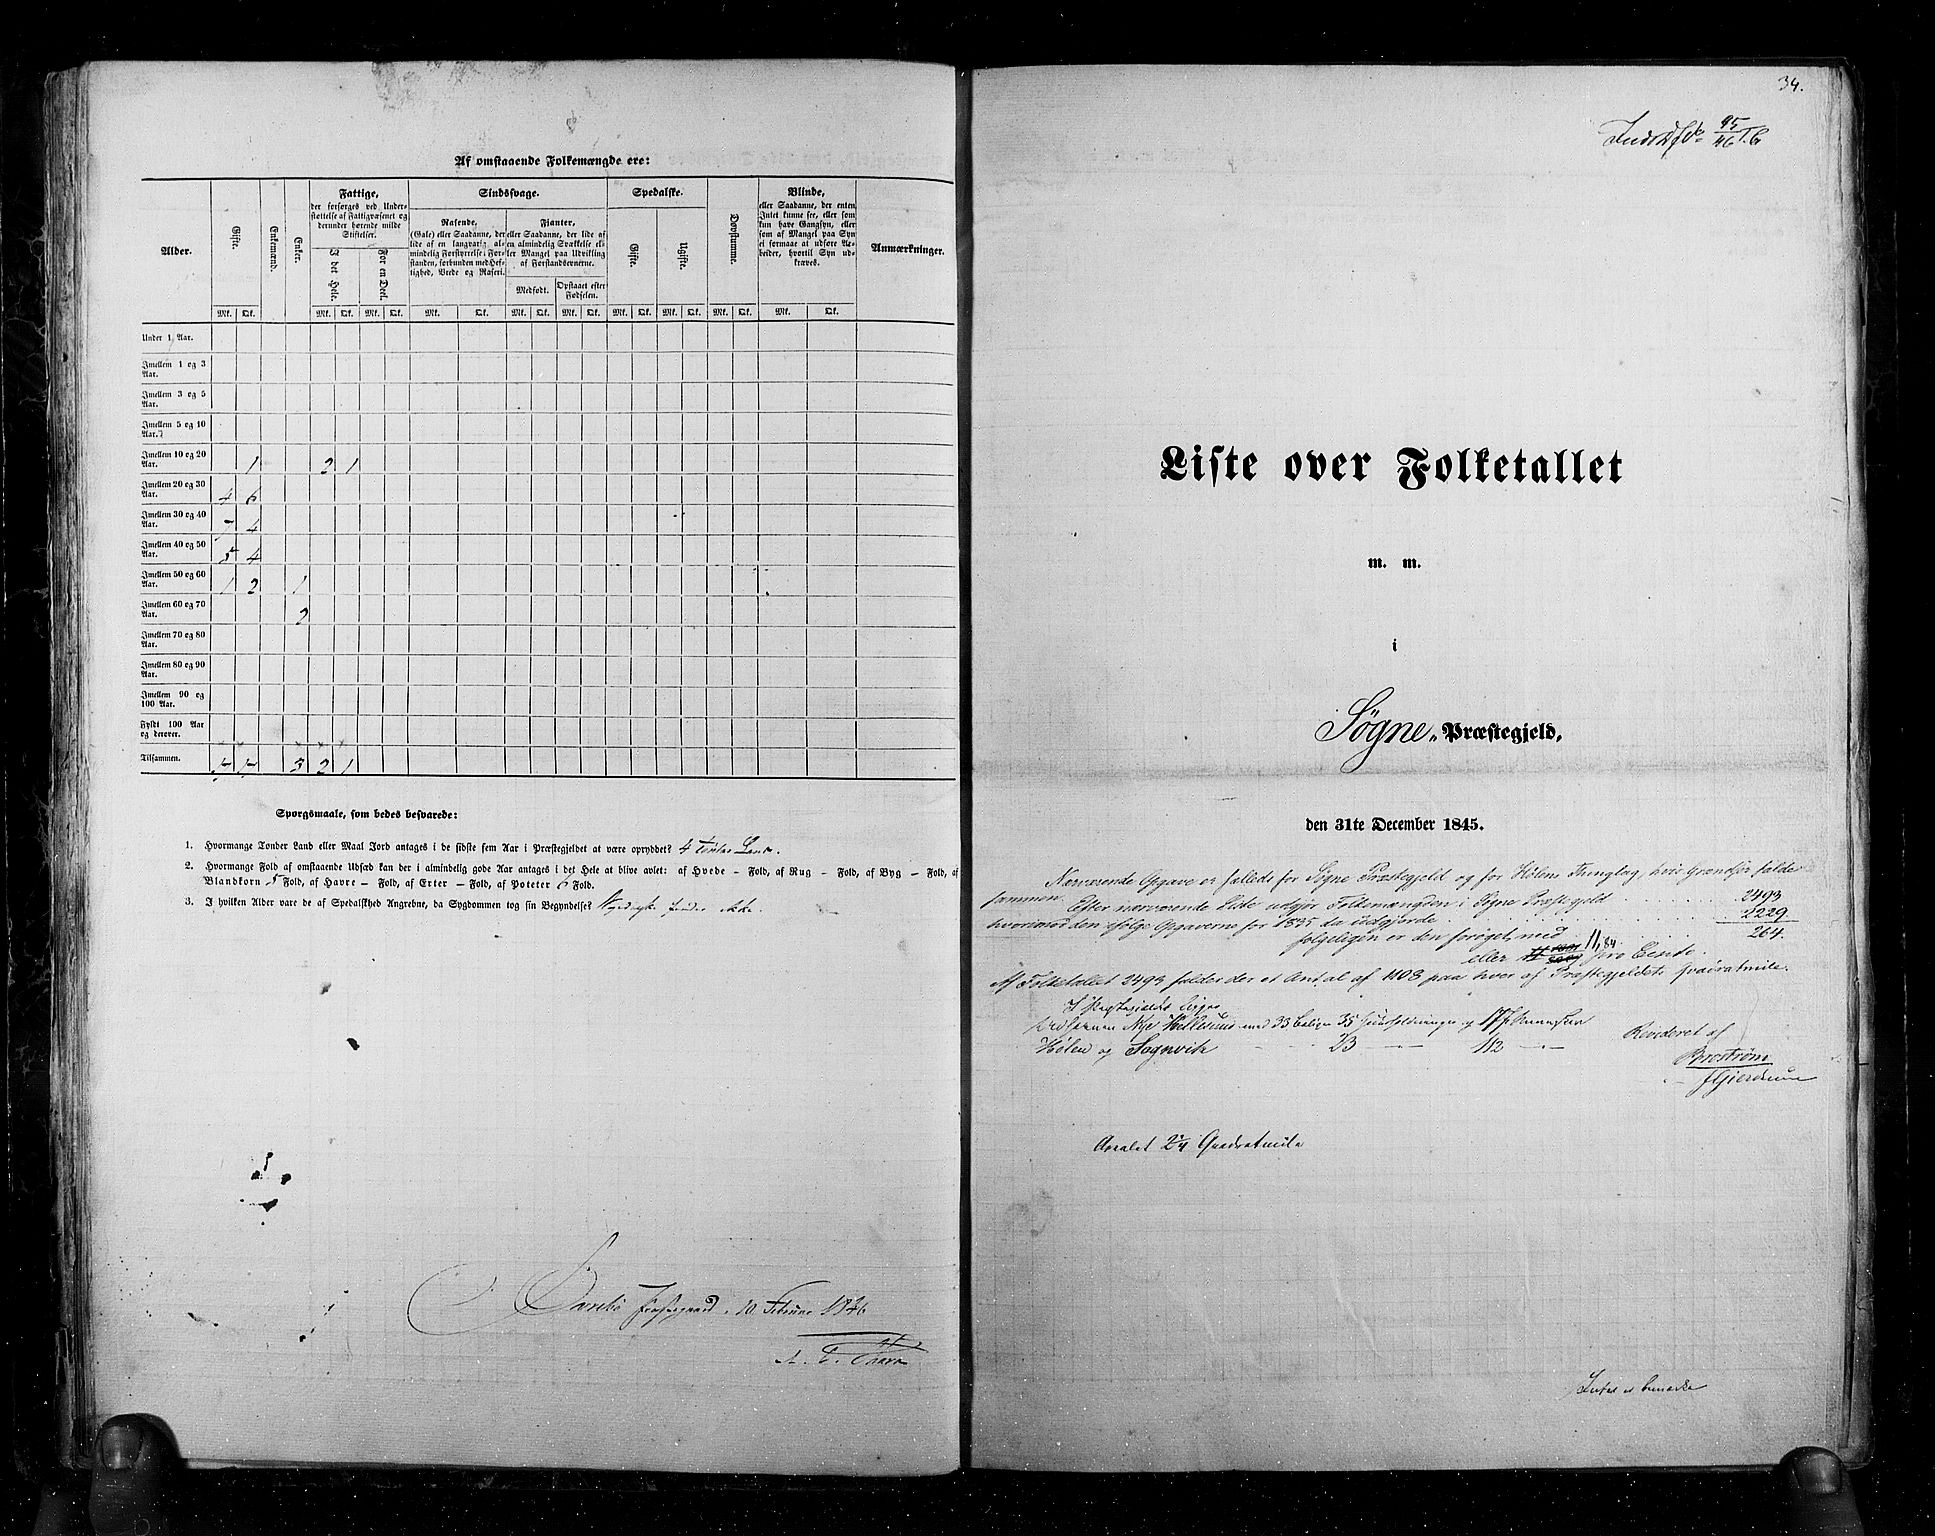 Af omstaaende Folkemængde ere:
Alder.
Gifte.
Enkemænd.
Enker.
Fattige,
der forsørges ved Under-
støttelse af Fattigvæsenet og
derunder hørende milde
Stiftelser.
I det Hele.
For en Deel.
Sindssvage.
Rasende,
(Gale) eller Saadanne, der
lide af en langvarig, al-
mindelig Forstyrrelse i For-
standen, forbunden med Hef-
tighed, Vrede og Raseri.
Fjanter,
eller Saadanne, der lide af
en almindelig Svækkelse el-
ler Mangel paa Udvikling
af Forstandsevnerne.
Medfødt.
Opstaaet efter
Fødselen.
Spedalske.
Gifte.
Ugifte.
Døvstumme.
Blinde,
eller Saadanne, der enten
Intet kunne see, eller som
kun have Gangsyn, eller
som af Mangel paa Syn
ei formaae at udføre Ar-
beider, hvortil Syn ud-
kræves.
Anmærkninger.
Mk. Qk. Mk. Qk. Mk. Qk. Mk. Qk. Mk. Qk. Mk. Qk. Mk. Qk. Mk. Qk. Mk. Qk. Mk. Qk.
Under 1 Aar.
Imellem 1 og 3
Aar.
Imellem 3 og 5
Aar.
Imellem 5 og 10
Aar.
Imellem 10 og 20
Aar. 1 2 1
Imellem 20 og 30
Aar. 4 6
Imellem 30 og 40
Aar. 7 4
Imellem 40 og 50
Aar. 5 4
Imellem 50 og 60
Aar. 1 2 1
Imellem 60 og 70
Aar. 2
Imellem 70 og 80
Aar.
Imellem 80 og 90
Aar.
Imellem 90 og
100 Aar.
Fyldt 100 Aar
og derover.
Tilsammen. 17 17 3 2 1
Spørgsmaale, som bedes besvarede:
1. Hvormange Tønder Land eller Maal Jord antages i de sidste fem Aar i Præstegjeldet at være opryddet? 4 Tønder Land.
2. Hvormange Fold af omstaaende Udsæd kan der i almindelig gode Aar antages i det Hele at blive avlet: af Hvede — Fold, af Rug — Fold, af Byg — Fold, af
Blandkorn 5 Fold, af Havre — Fold, af Erter — Fold, af Poteter 6 Fold.
3. I hvilken Alder vare de af Spedalskhed Angrebne, da Sygdommen tog sin Begyndelse?
10 Februar 1846
34.
45/46
Liste over Folketallet
m. m.
i
Søgne Præstegjeld,
den 31te December 1845.
Nærværende Opgave er fælleds for Søgne Præstegjeld og for Hølens Thinglag, hvis Grændser falde
sammen. Efter nærværende Liste udgjør Folkemængden i Søgne Præstegjeld 2493
hvorimod den ifølge Opgaverne for 1835 da udgjorde 2229
følgeligen er den forøget med 264.
eller 11,84 pro Cento.
Af Folketallet 2493 falder der et Antal af 1108 paa hver af Præstegjeldets Quadratmile.
I Præstegjeldet ligge
Udhavnen Nye Hellesund med 33 Boliger 35 Huusholdninger og 175 Mennesker
Hølen og Søgnvik 23 112
Revideret af
Brostrøm
Arealet 2¼ Quadratmile
Intet at bemærke